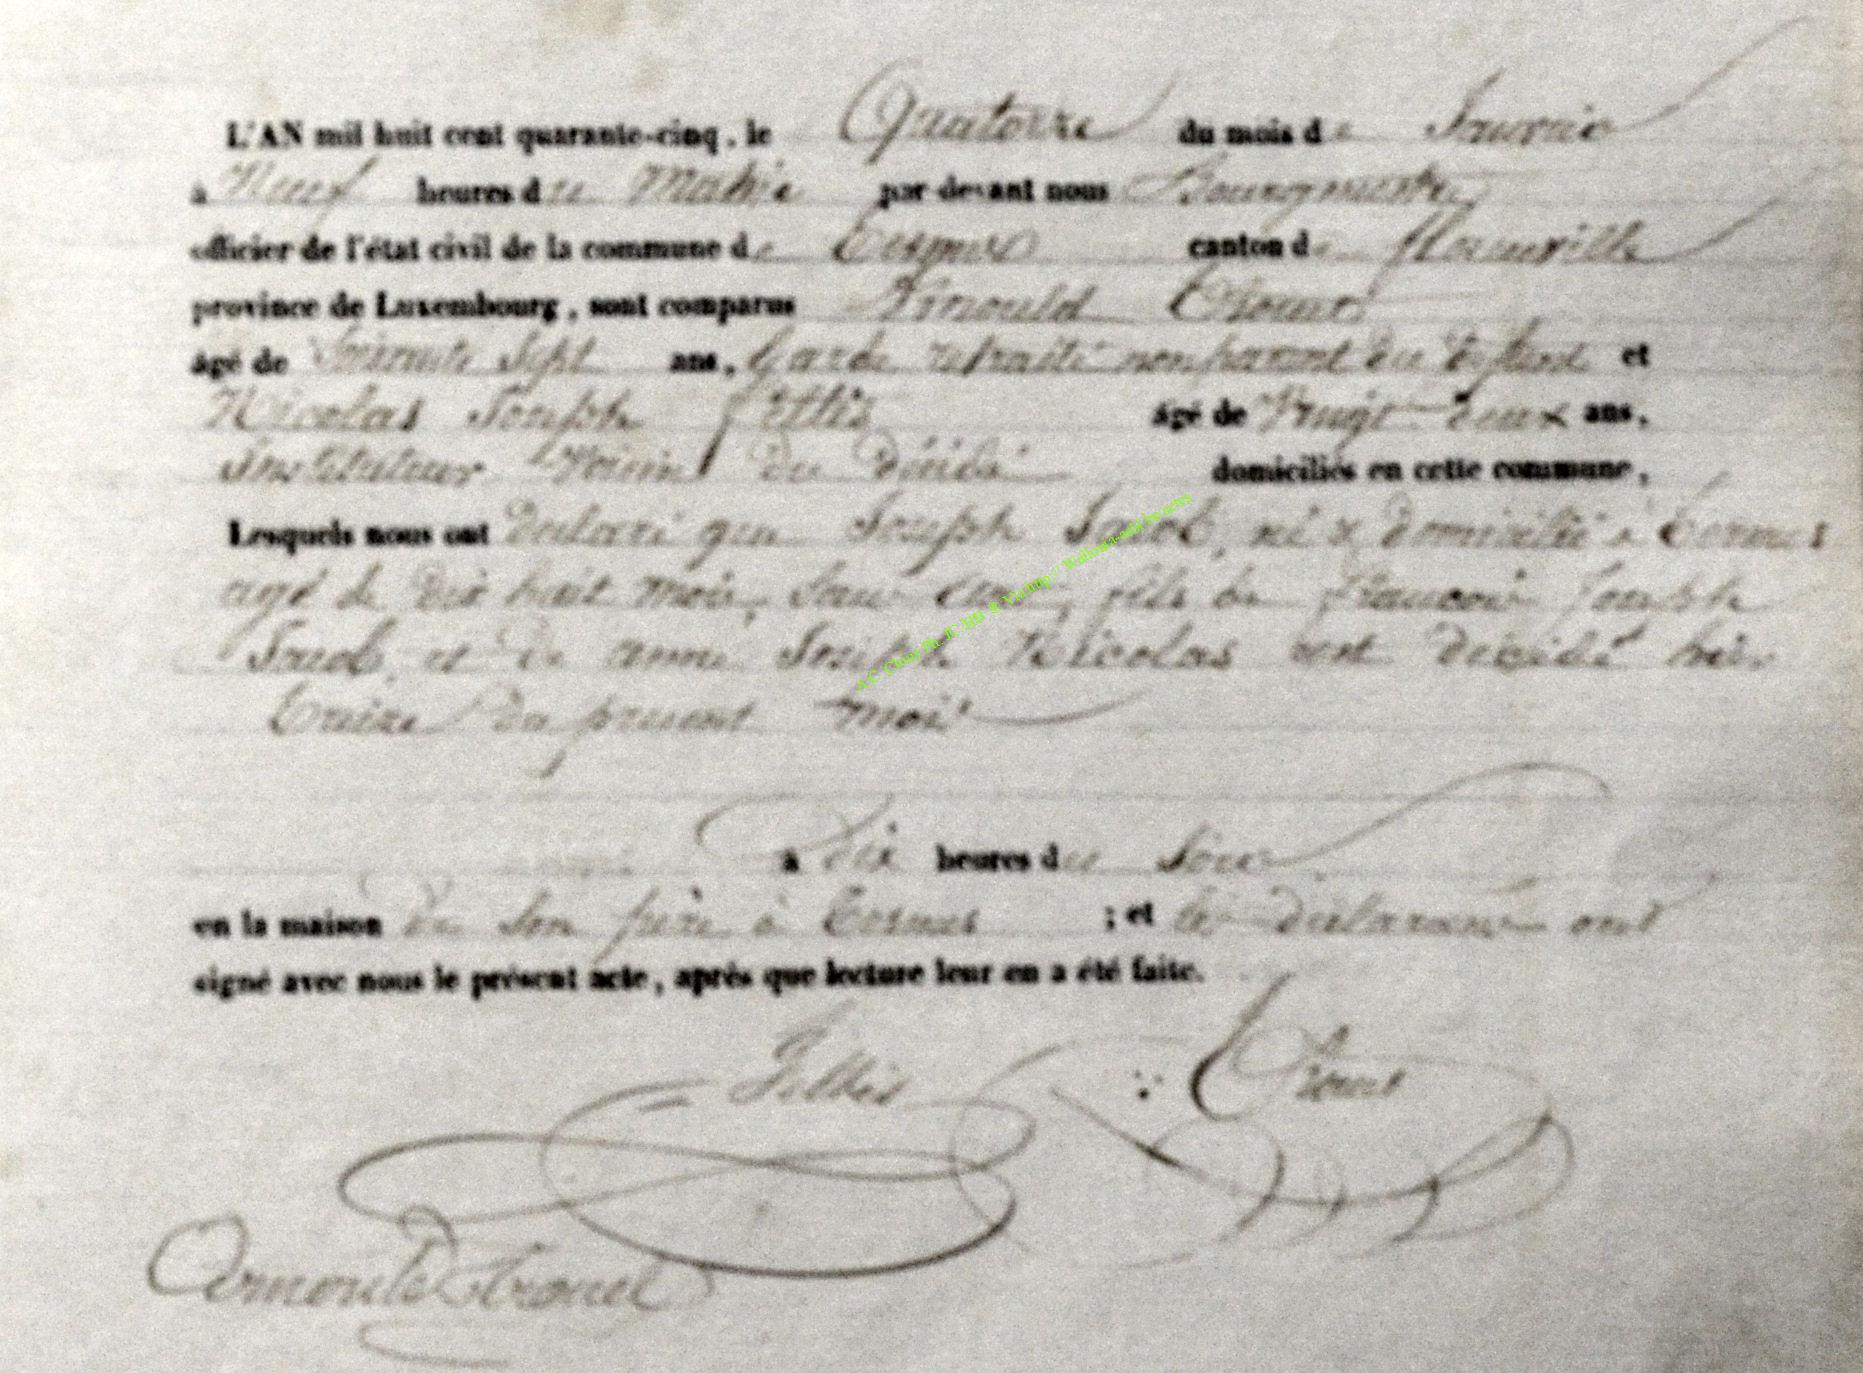 L'AN mil huit cent quarante-cinq, le Quatorze du mois de Janvier
à Neuf heures du Matin par-devant nous Bourgmestre
officier de l'état civil de la commune de canton de
province de Luxembourg, sont comparus Arnould
âgé de Soixante Sept ans, Garde retraité non parent du défunt et
Nicolas Joseph âgé de Vingt-deux ans,
Instituteur Voisin du décédé domiciliés en cette commune,
Lesquels nous ont déclaré que Joseph Jacob, né & domicilié à Termes
agé de dix huit mois, Sans état, fils de François Joseph
Jacob, et de anne Joseph Nicolas est décédé hier
treize du present mois
à dix heures du Soir
en la maison de Son père à Termes ; et les déclarants ont
signé avec nous le présent acte, après que lecture leur en a été faite.